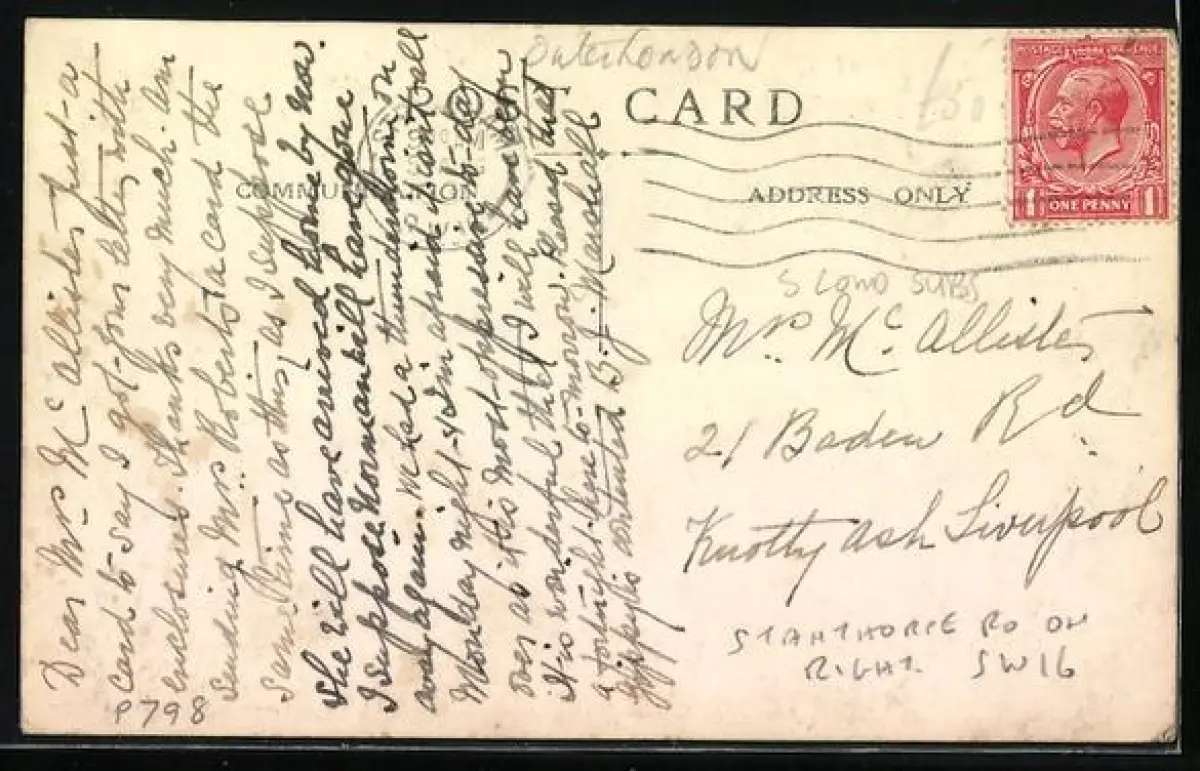 Outer London
£5
POST CARD
COMMUNICATION
ADDRESS ONLY
POSTAGE REVENUE
1 ONE PENNY 1
Dear Mrs McAllister Just a
card to say I got your letter with
enclosures. Thanks very much. Am
sending Mrs. Roberts a card the
same time as this, as I suppose
she will have arrived home by now.
I suppose Norman will have gone
away again. We had a thunderstorm on
Monday night & I'm afraid it isn't all
over as it is most oppressive to-day
It is wonderful that I will have been
a fortnight here to-morrow. Pleased that
is contented B. J. Marshall
S LOND SUBS
Mrs. McAllister
21 Baden Rd.
Knotty Ash Liverpool
STANTHORPE RD ON
RIGHT. SW16
P798